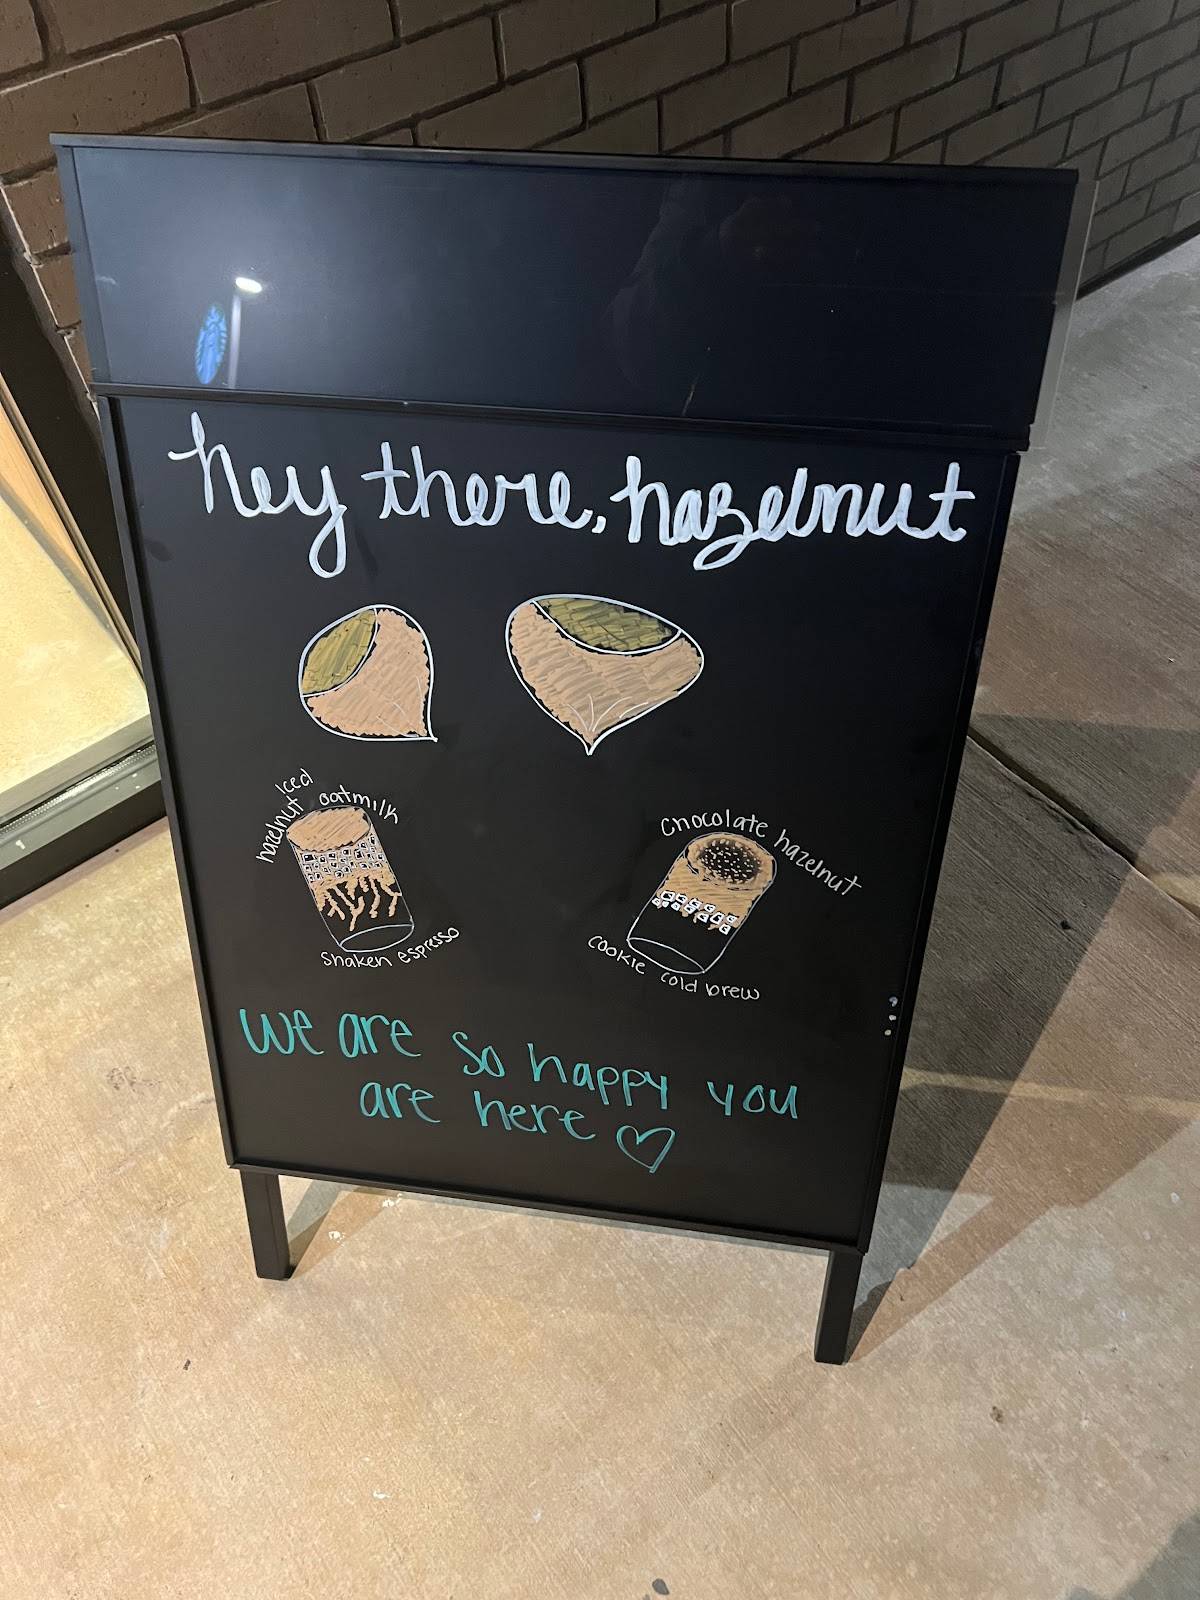 hey there, hazelnut
Iced
hazelnut oatmilk
shaken espresso
Chocolate hazelnut
cookie cold brew
We are so happy you
are here ♡